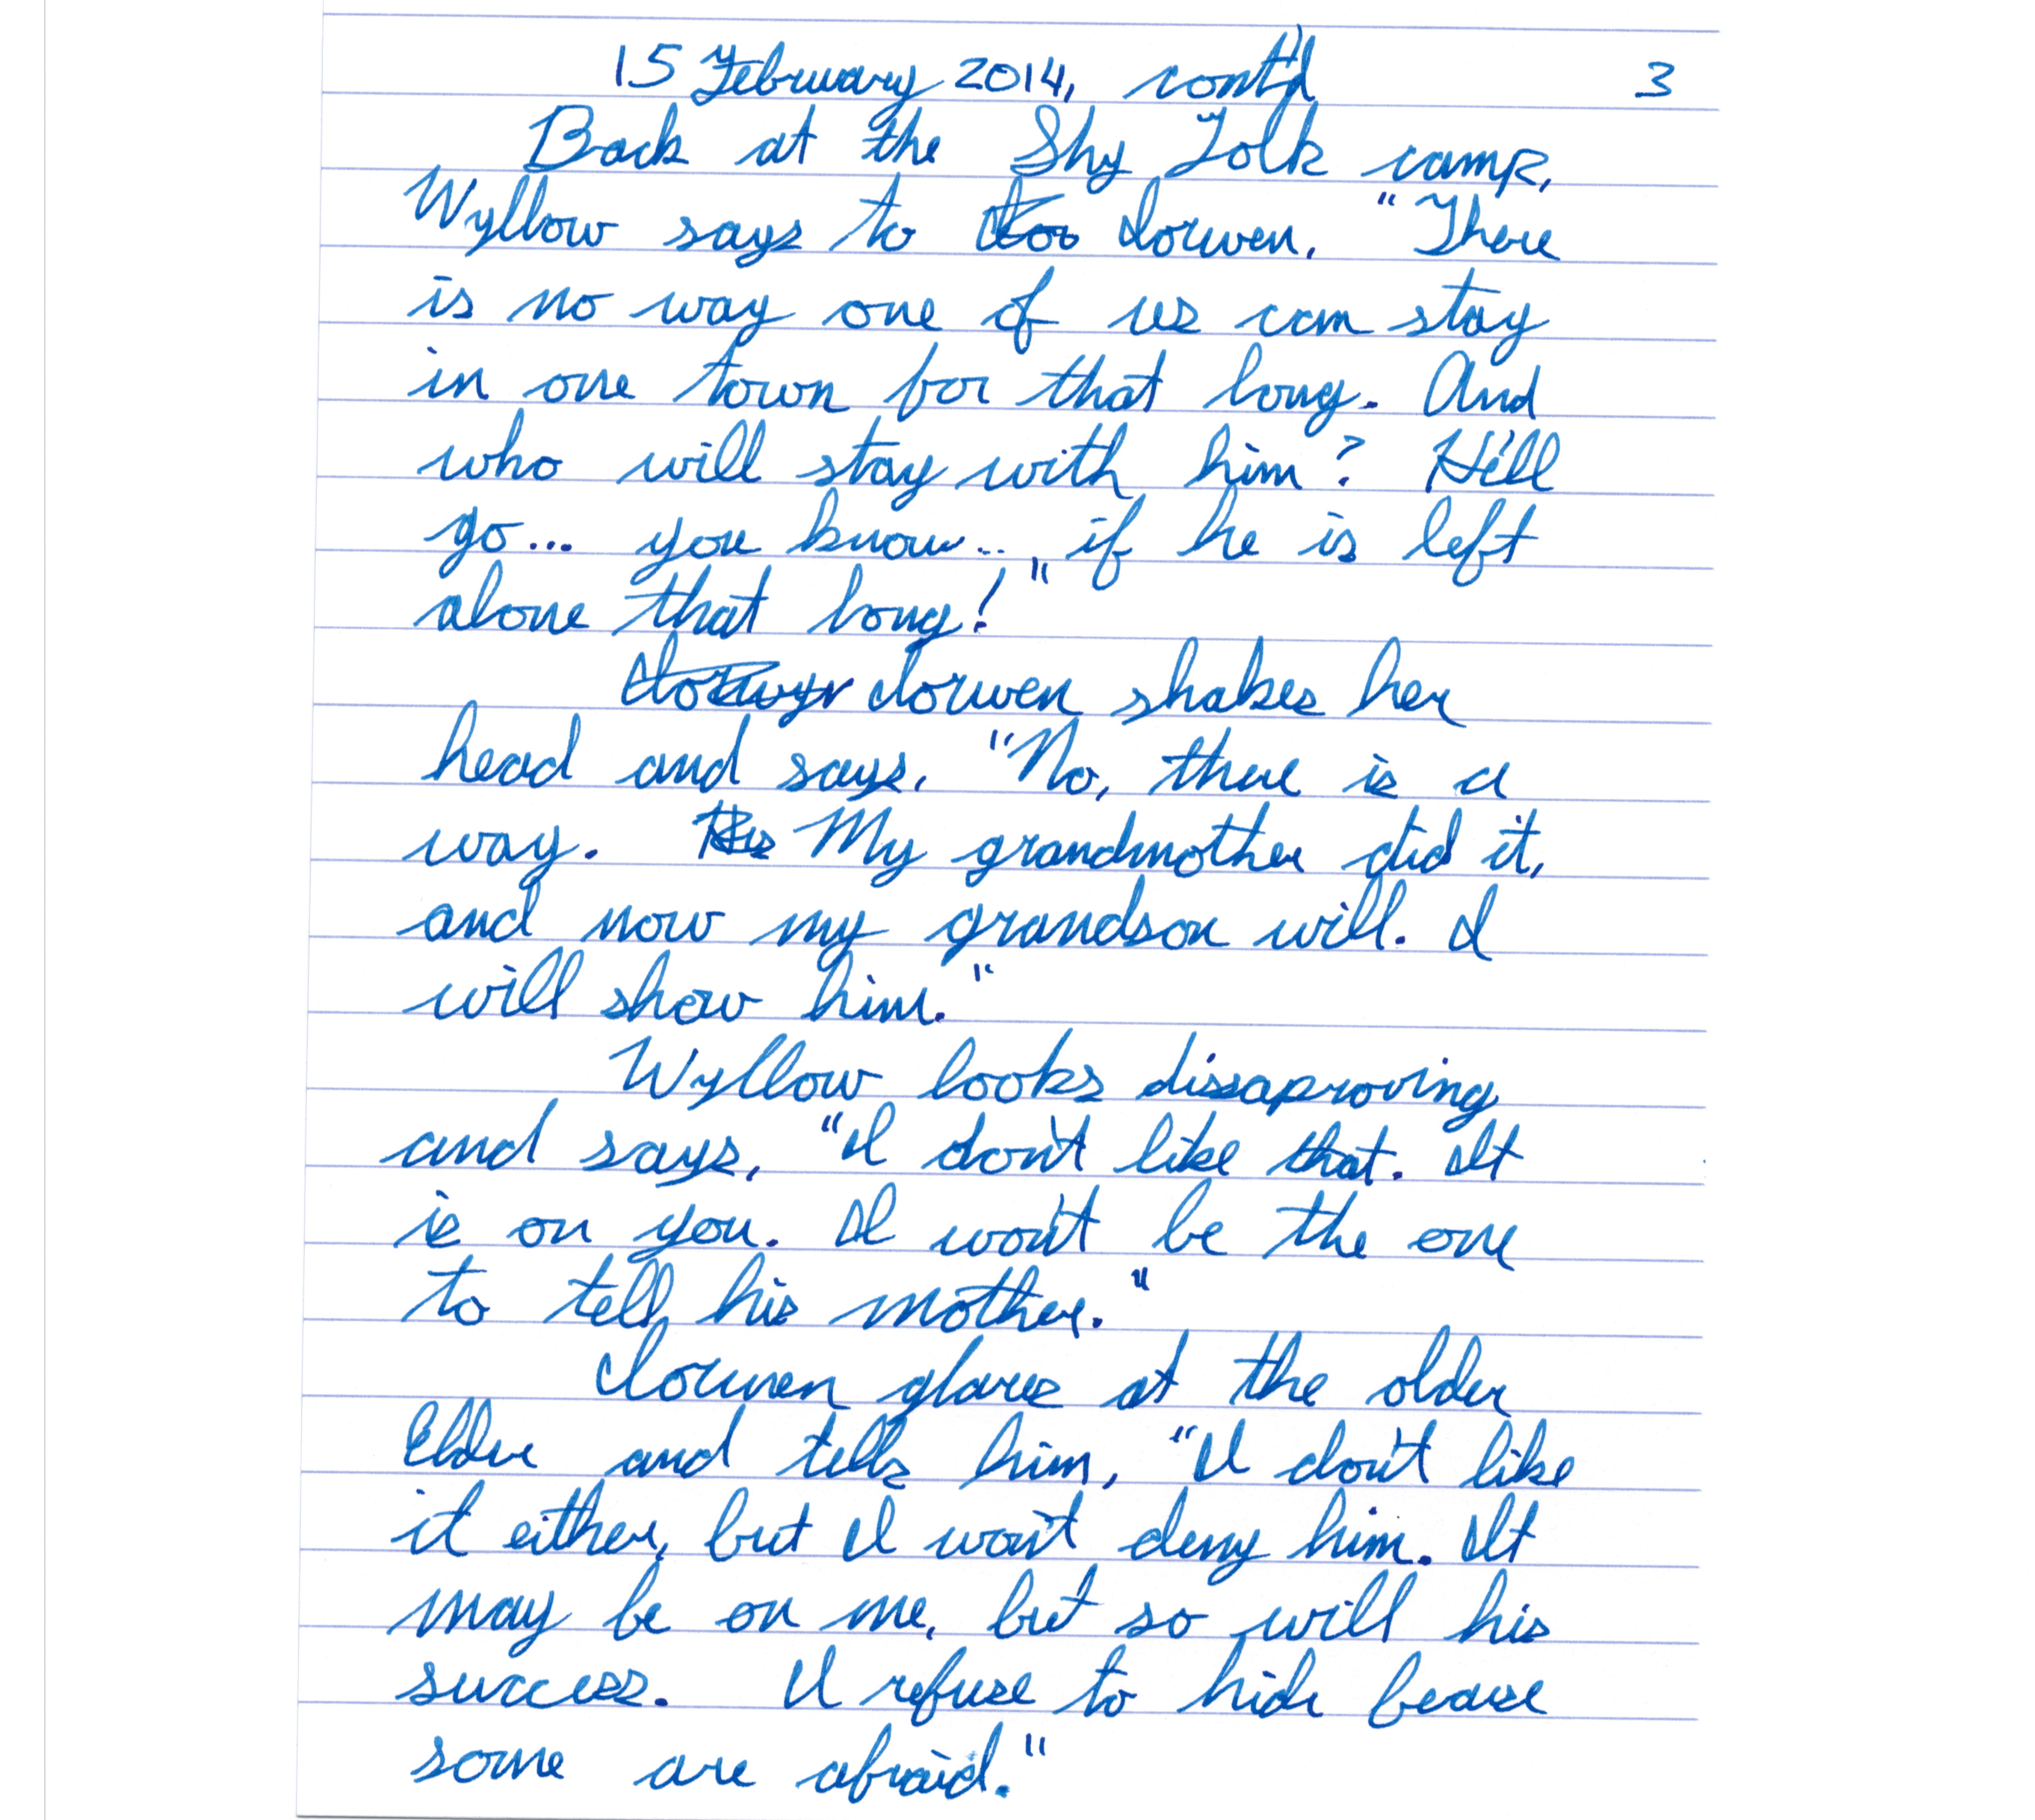 15 February 2014, cont'd 3
Back at the Shy Folk camp,
Wyllow says to Iorwen, "There
is no way one of us can stay
in one town for that long. And
who will stay with him? He'll
go... you know... if he is left
alone that long!"
Iorwen shakes her
head and says, "No, there is a
way. My grandmother did it,
and now my grandson will. I
will show him."
Wyllow looks dissaproving
and says, "I don't like that. It
is on you. I won't be the one
to tell his mother."
Iorwen glares at the older
Elder and tells him, "I don't like
it either, but I won't deny him. It
may be on me, but so will his
success. I refuse to hide becaue
some are afraid."